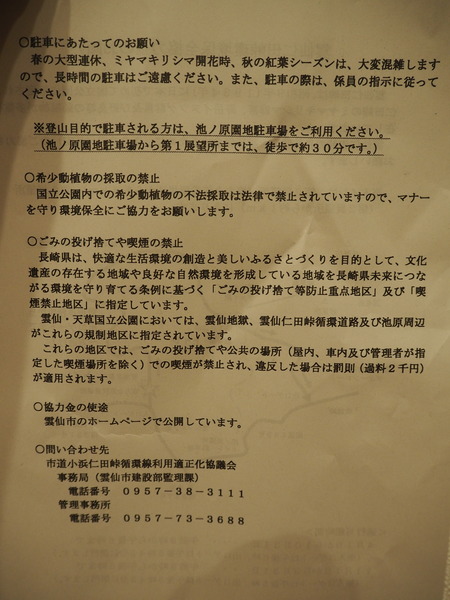 ○駐車にあたってのお願い
春の大型連休、ミヤマキリシマ開花時、秋の紅葉シーズンは、大変混雑します
ので、長時間の駐車はご遠慮ください。また、駐車の際は、係員の指示に従って
ください。
※登山目的で駐車される方は、池ノ原園地駐車場をご利用ください。
（池ノ原園地駐車場から第１展望所までは、徒歩で約３０分です。）
○希少動植物の採取の禁止
国立公園内での希少動植物の不法採取は法律で禁止されていますので、マナー
を守り環境保全にご協力をお願いします。
○ごみの投げ捨てや喫煙の禁止
長崎県は、快適な生活環境の創造と美しいふるさとづくりを目的として、文化
遺産の存在する地域や良好な自然環境を形成している地域を長崎県未来につな
がる環境を守り育てる条例に基づく「ごみの投げ捨て等防止重点地区」及び「喫
煙禁止地区」に指定しています。
雲仙・天草国立公園においては、雲仙地獄、雲仙仁田峠循環道路及び池原周辺
がこれらの規制地区に指定されています。
これらの地区では、ごみの投げ捨てや公共の場所（屋内、車内及び管理者が指
定した喫煙場所を除く）での喫煙が禁止され、違反した場合は罰則（過料２千円）
が適用されます。
○協力金の使途
雲仙市のホームページで公開しています。
○問い合わせ先
市道小浜仁田峠循環線利用適正化協議会
事務局（雲仙市建設部監理課）
電話番号　０９５７－３８－３１１１
管理事務所
電話番号　０９５７－７３－３６８８